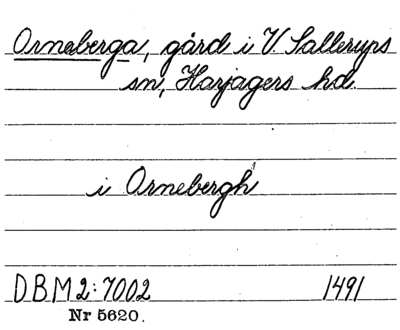 Ornaberga, gård i V. Sallerups
sn, Harjagers hd.
i Ornebergh
DBM2:7002 1491
Nr 5620.